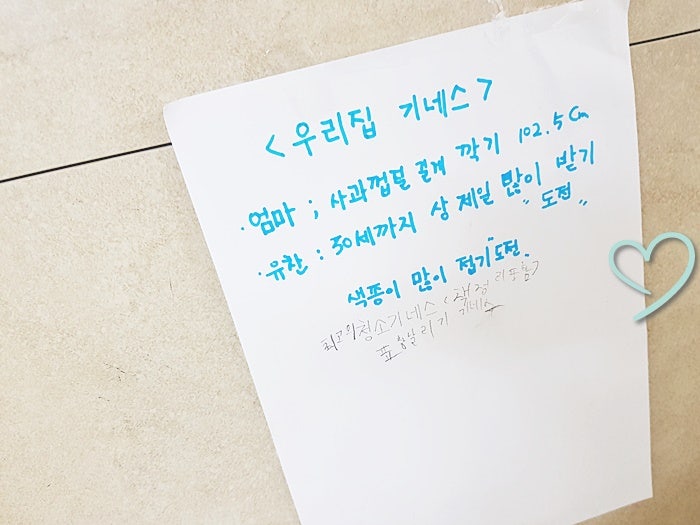 <우리집 기네스>
· 엄마 ; 사과껍딜 길게 깍기 102.5 Cm
· 유찬 : 30세까지 상 제일 많이 받기
" 도전 "
색종이 많이 접기 "도전.
최고의 청소기네스 (책정리포함)
표창날리기 기네스